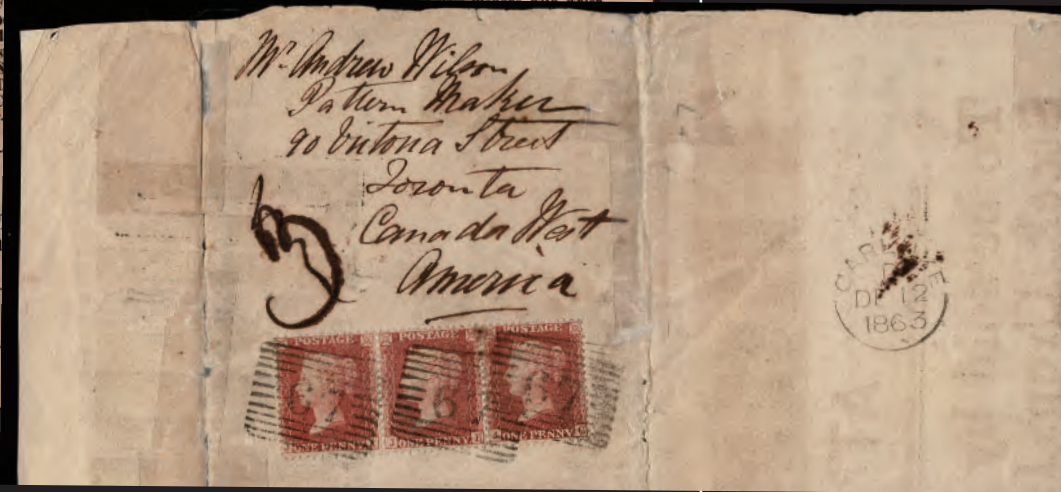 Mr Andrew Wilson
Pattern Maker
90 Victoria Street
Toronto
Canada West
America
3
POSTAGE POSTAGE POSTAGE
ONE PENNY ONE PENNY ONE PENNY
6
DE 12
1863